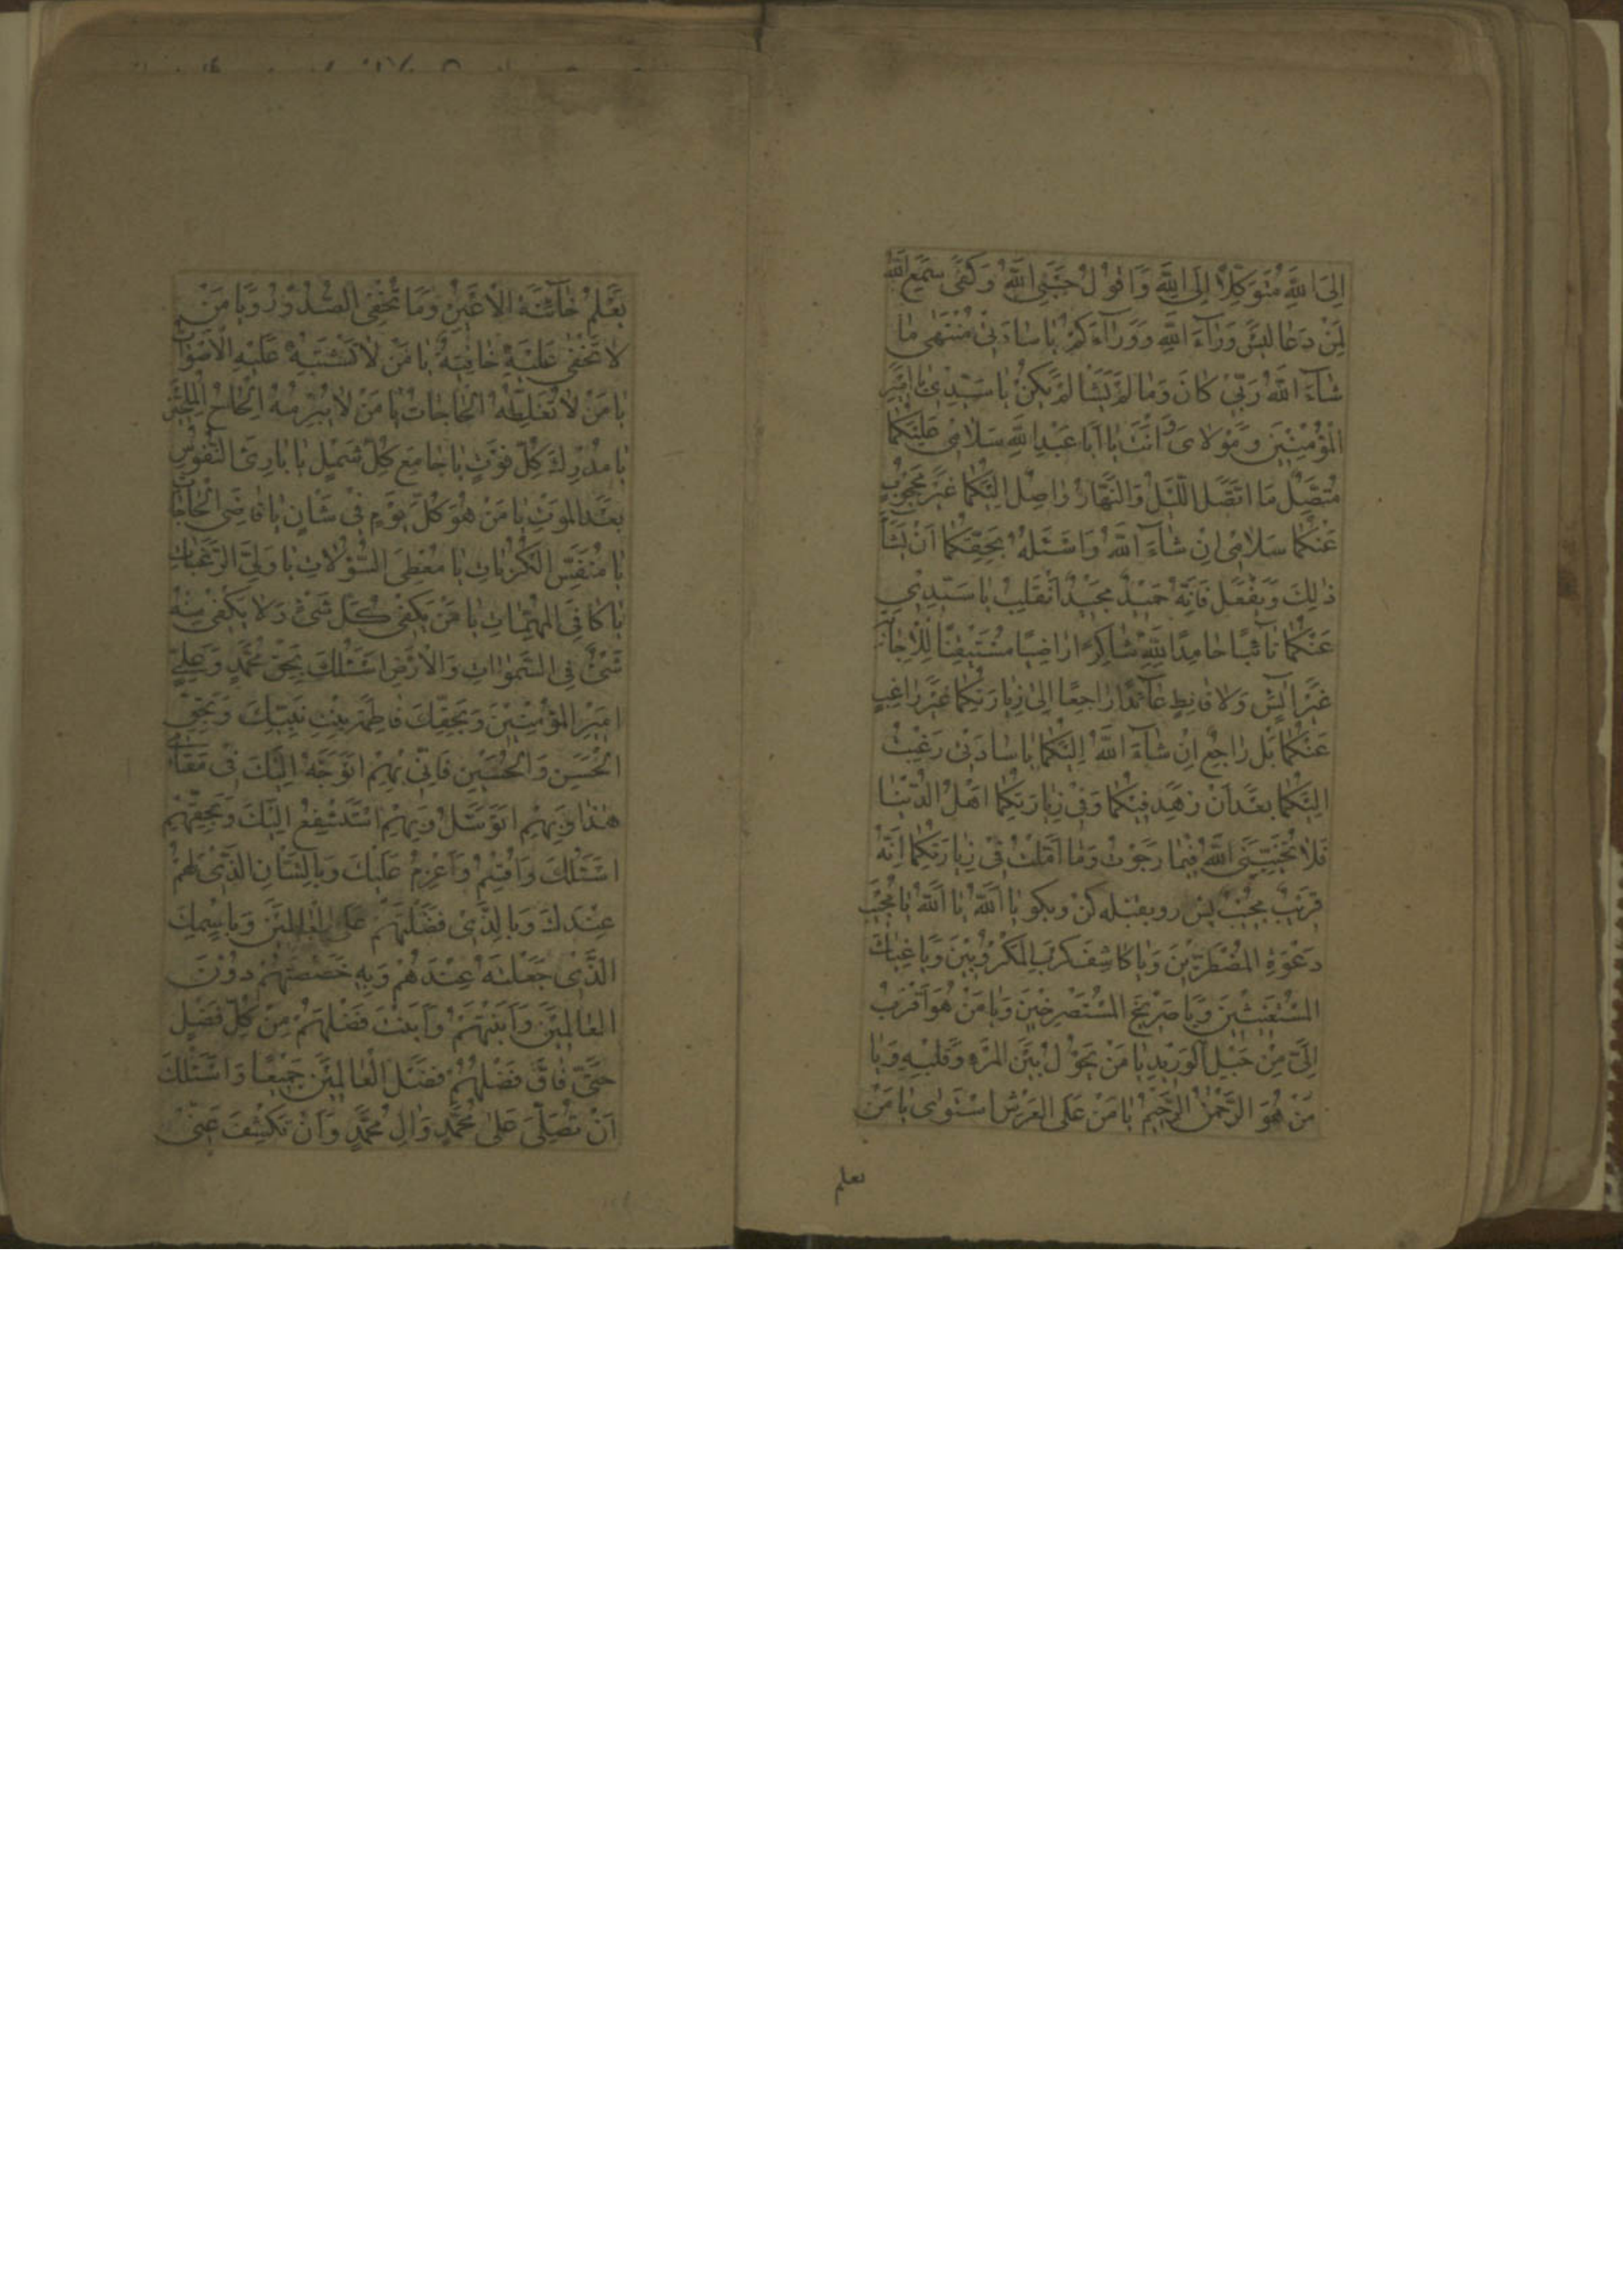 اِلَى اللهِ مُتَوَكِّلاً اِلَى اللهِ وَاَقُولُ حَسْبِىَ اللهُ وَكَفٰى سَمِعَ اللهُ
لِمَنْ دَعَا لَيْسَ وَرَآءَ اللهِ وَوَرَآءَكُمْ يَا سَادَتِى مُنْتَهٰى مَا
شَآءَ اللهُ رَبِّى كَانَ وَمَا لَمْ يَشَا لَمْ يَكُنْ يَا سَيِّدِى يَا اَمِيْرَ
الْمُؤْمِنِيْنَ وَمَوْلَاىَ وَاَنْتَ يَا اَبَا عَبْدِ اللهِ سَلَامِى عَلَيْكُمَا
مُتَّصِلٌ مَا اتَّصَلَ اللَّيْلَ وَالنَّهَارَ وَاصِلٌ اِلَيْكُمَا غَيْرَ مَحْجُوْبٍ
عَنْكُمَا سَلَامِى اِنْ شَآءَ اللهُ وَاَسْئَلُهُ بِحَقِّكُمَا اَنْ يَشَآ
ذٰلِكَ وَيَفْعَلَ فَاِنَّهُ حَمِيْدٌ مَجِيْدٌ اَنْقَلِبُ يَا سَيِّدِىْ
عَنْكُمَا تَآئِبًا حَامِدًا لِلّٰهِ شَاكِرًا رَاضِيًا مُسْتَيْقِنًا لِلْاِجَابَةِ
غَيْرَ اٰيِسٍ وَلَا قَانِطٍ عَآئِدًا رَاجِعًا اِلٰى زِيَارَتِكُمَا غَيْرَ رَاغِبٍ
عَنْكُمَا بَلْ رَاجِعٌ اِنْ شَآءَ اللهُ اِلَيْكُمَا يَا سَادَتِى رَغِبْتُ
اِلَيْكُمَا بَعْدَ اَنْ زَهِدَ فِيْكُمَا وَفِى زِيَارَتِكُمَا اَهْلُ الدُّنْيَا
فَلَا يُخَيِّبَنِىَ اللهُ فِيْمَا رَجَوْتُ وَمَا اَمَّلْتُ فِى زِيَارَتِكُمَا اِنَّهُ
قَرِيْبٌ مُجِيْبٌ پس رو بقبله كن وبكو يَا اَللهُ يَا اَللهُ يَا مُجِيْبَ
دَعْوَةِ الْمُضْطَرِّيْنَ وَيَا كَاشِفَ كَرْبِ الْمَكْرُوْبِيْنَ وَيَا غِيَاثَ
الْمُسْتَغِيْثِيْنَ وَيَا صَرِيْخَ الْمُسْتَصْرِخِيْنَ وَيَا مَنْ هُوَ اَقْرَبُ
اِلَىَّ مِنْ حَبْلِ الْوَرِيْدِ يَا مَنْ يَحُوْلُ بَيْنَ الْمَرْءِ وَقَلْبِهِ وَيَا
مَنْ هُوَ الرَّحْمٰنُ الرَّحِيْمُ يَا مَنْ عَلَى الْعَرْشِ اسْتَوٰى يَا مَنْ
يعلم
يَعْلَمُ خَآئِنَةَ الْاَعْيُنِ وَمَا تُخْفِى الصُّدُوْرُ وَيَا مَنْ
لَا تَخْفٰى عَلَيْهِ خَافِيَةٌ يَا مَنْ لَا تَشْتَبِهُ عَلَيْهِ الْاَصْوَاتُ
يَا مَنْ لَا تُغَلِّطُهُ الْحَاجَاتُ يَا مَنْ لَا يُبْرِمُهُ اِلْحَاحُ الْمُلِحِّيْنَ
يَا مُدْرِكَ كُلِّ فَوْتٍ يَا جَامِعَ كُلِّ شَمْلٍ يَا بَارِئَ النُّفُوْسِ
بَعْدَ الْمَوْتِ يَا مَنْ هُوَ كُلَّ يَوْمٍ فِى شَانٍ يَا قَاضِىَ الْحَاجَاتِ
يَا مُنَفِّسَ الْكُرُبَاتِ يَا مُعْطِىَ السُّؤْلَاتِ يَا وَلِىَّ الرَّغَبَاتِ
يَا كَافِىَ الْمُهِمَّاتِ يَا مَنْ يَكْفِى كُلَّ شَىْءٍ وَلَا يَكْفِى مِنْهُ
شَىْءٌ فِى السَّمٰوَاتِ وَالْاَرْضِ اَسْئَلُكَ بِحَقِّ مُحَمَّدٍ وَعَلِىٍّ
اَمِيْرِ الْمُؤْمِنِيْنَ وَبِحَقِّكَ فَاطِمَةَ بِنْتِ نَبِيِّكَ وَبِحَقِّ
الْحَسَنِ وَالْحُسَيْنِ فَاِنِّى بِهِمْ اَتَوَجَّهُ اِلَيْكَ فِى مَقَامِى
هٰذَا وَبِهِمْ اَتَوَسَّلُ وَبِهِمْ اَسْتَشْفِعُ اِلَيْكَ وَبِحَقِّهِمْ
اَسْئَلُكَ وَاُقْسِمُ وَاَعْزِمُ عَلَيْكَ وَبِالشَّانِ الَّذِىْ لَهُمْ
عِنْدَكَ وَبِالَّذِىْ فَضَّلْتَهُمْ عَلَى الْعَالَمِيْنَ وَبِاسْمِكَ
الَّذِىْ جَعَلْتَهُ عِنْدَهُمْ وَبِهِ خَصَصْتَهُمْ دُوْنَ
الْعَالَمِيْنَ وَاَبَنْتَهُمْ وَاَبَنْتَ فَضْلَهُمْ مِنْ كُلِّ فَضْلٍ
حَتّٰى فَاقَ فَضْلُهُمْ فَضْلَ الْعَالَمِيْنَ جَمِيْعًا وَاَسْئَلُكَ
اَنْ تُصَلِّىَ عَلٰى مُحَمَّدٍ وَاٰلِ مُحَمَّدٍ وَاَنْ تَكْشِفَ عَنِّىْ